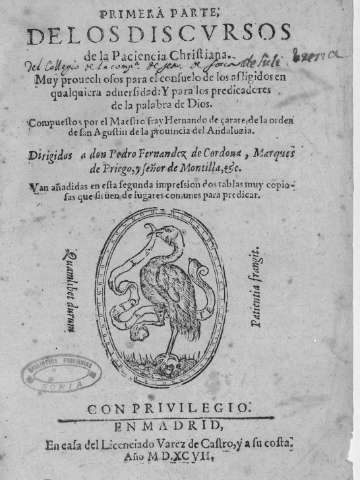 PRIMERA PARTE,
DE LOS DISCVRSOS
de la Paciencia Christiana.
del Collegio de la comp.ª de Jesus de Soria
Muy prouechosos para el consuelo de los afligidos en
qualquiera aduersidad: Y para los predicadores
de la palabra de Dios.
Compuestos por el Maestro fray Hernando de çarate, de la orden
de san Agustin de la prouincia del Andaluzia.
Dirigidos a don Pedro Fernandez de Cordoua, Marques
de Priego, y señor de Montilla, &c.
Van añadidas en esta segunda impression dos tablas muy copio-
sas que siruen de lugares comunes para predicar.
Quamlibet durum
Patientia frangit.
BIBLIOTECA PROVINCIAL
SORIA
CON PRIVILEGIO.
EN MADRID,
En casa del Licenciado Varez de Castro, y a su costa.
Año M.D.XCVII.